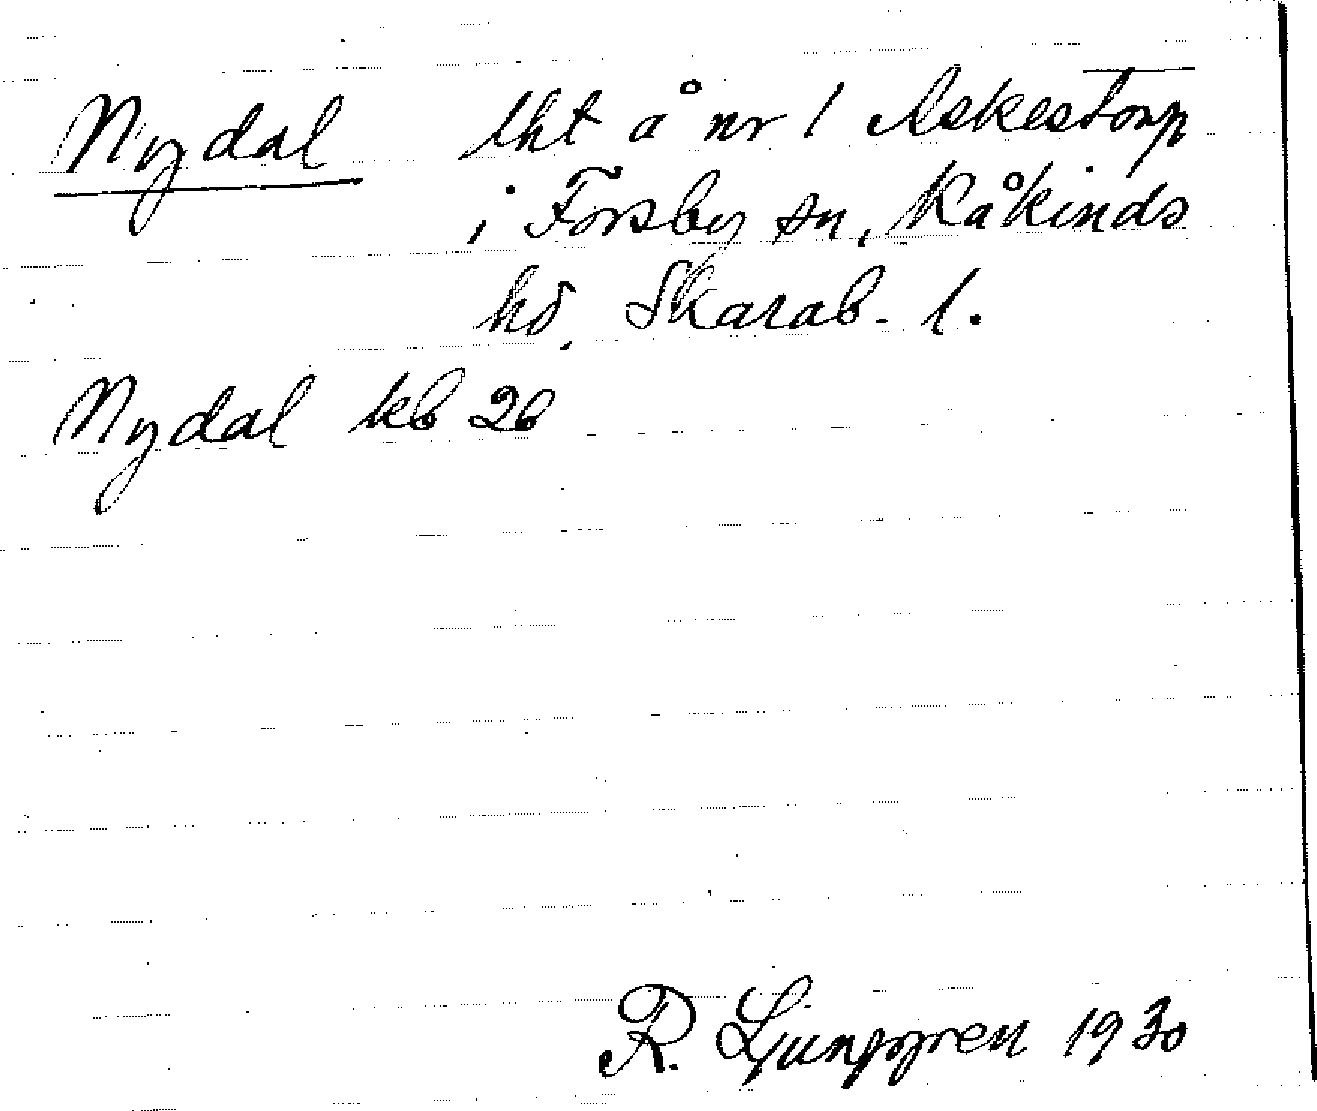 Nydal lht å nr 1 Askestorp
i Forsby sn, Kåkinds
hd, Skarab. l.
Nydal kb 26
R. Ljunggren 1930